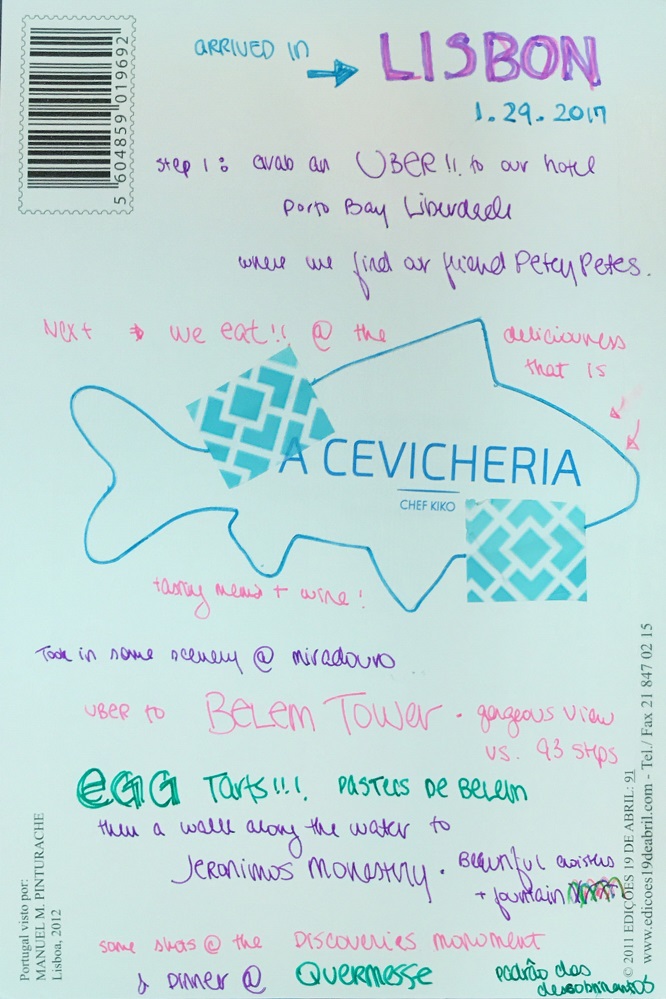 ARRIVED IN → LISBON
1.29.2017
Step 1: Grab an UBER!! to our hotel
Porto Bay Liberdade
where we find our friend Petey Petes.
Next → we eat!! @ the deliciousness
that is
A CEVICHERIA
CHEF KIKO
tasting menu + wine!
Took in some scenery @ miradouro
UBER to BELEM TOWER - gorgeous view
vs. 93 steps
EGG Tarts!!! PASTEIS DE BELEM
then a walk along the water to
Jeronimos Monastery. Beautiful cloisters
+ fountain
some shots @ the DISCOVERIES MONUMENT
& DINNER @ QUERMESSE
padrão dos
descobrimentos
5 604859 019692
Portugal visto por:
MANUEL M. PINTURACHE
Lisboa, 2012
© 2011 EDIÇÕES 19 DE ABRIL: 91
www.edicoes19deabril.com - Tel./ Fax 21 847 02 15